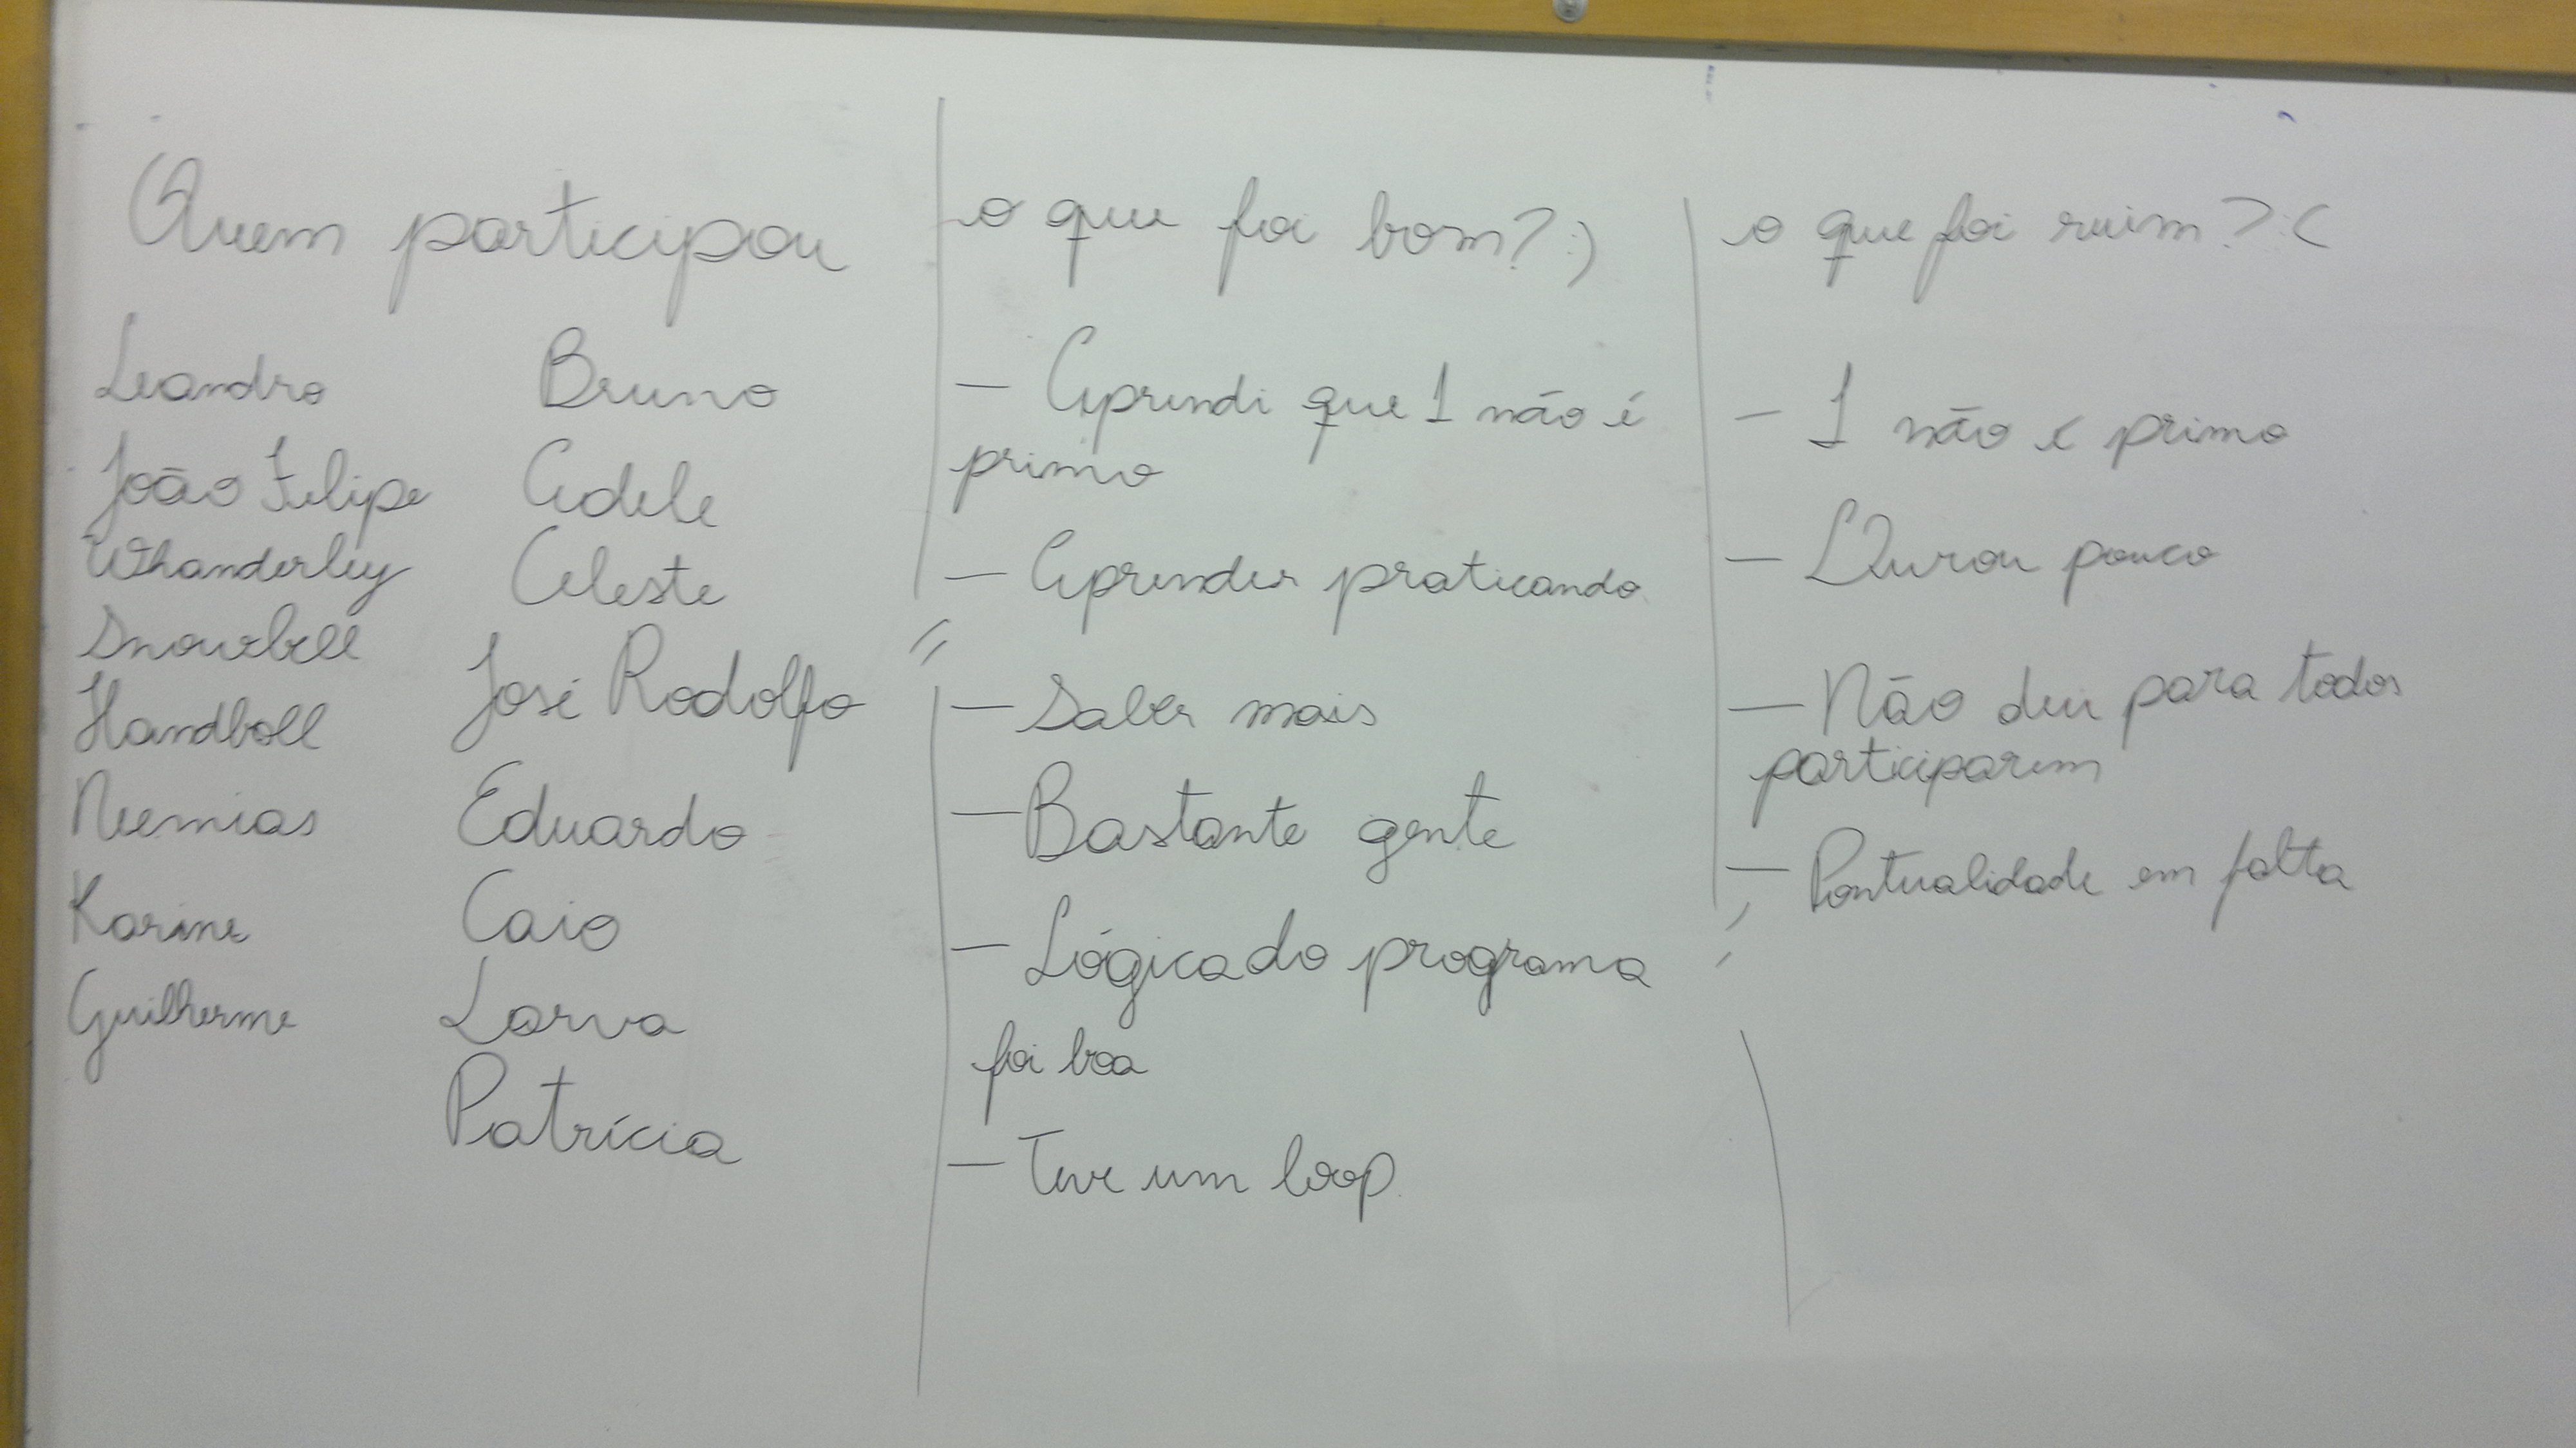 Quem participou
Leandro
João Felipe
Whanderley
Snowbell
Handboll
Neemias
Karine
Guilherme
Bruno
Adele
Celeste
José Rodolfo
Eduardo
Caio
Larva
Patrícia
o que foi bom? :)
- Aprendi que 1 não é
primo
- Aprender praticando
- Saber mais
- Bastante gente
- Lógica do programa
foi boa
- Teve um loop
o que foi ruim? :(
- 1 não é primo
- Durou pouco
- Não deu para todos
participarem
- Pontualidade em falta